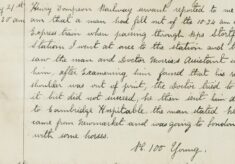 Henry Thompson Railway servant reported to me
am that a man had fallen out of the 10.24 am
Express train when passing through Bps Stortford
Station I went at once to the station and
saw the man and Doctor Assistant
him, after Examining him found that his
shoulder was out of joint, the Doctor tried to
it but did not succeed, he then sent him
to Cambridge Hospital, the man stated he
came from Newmarket and was going to London
with some horses.
Pc. 100 Young.